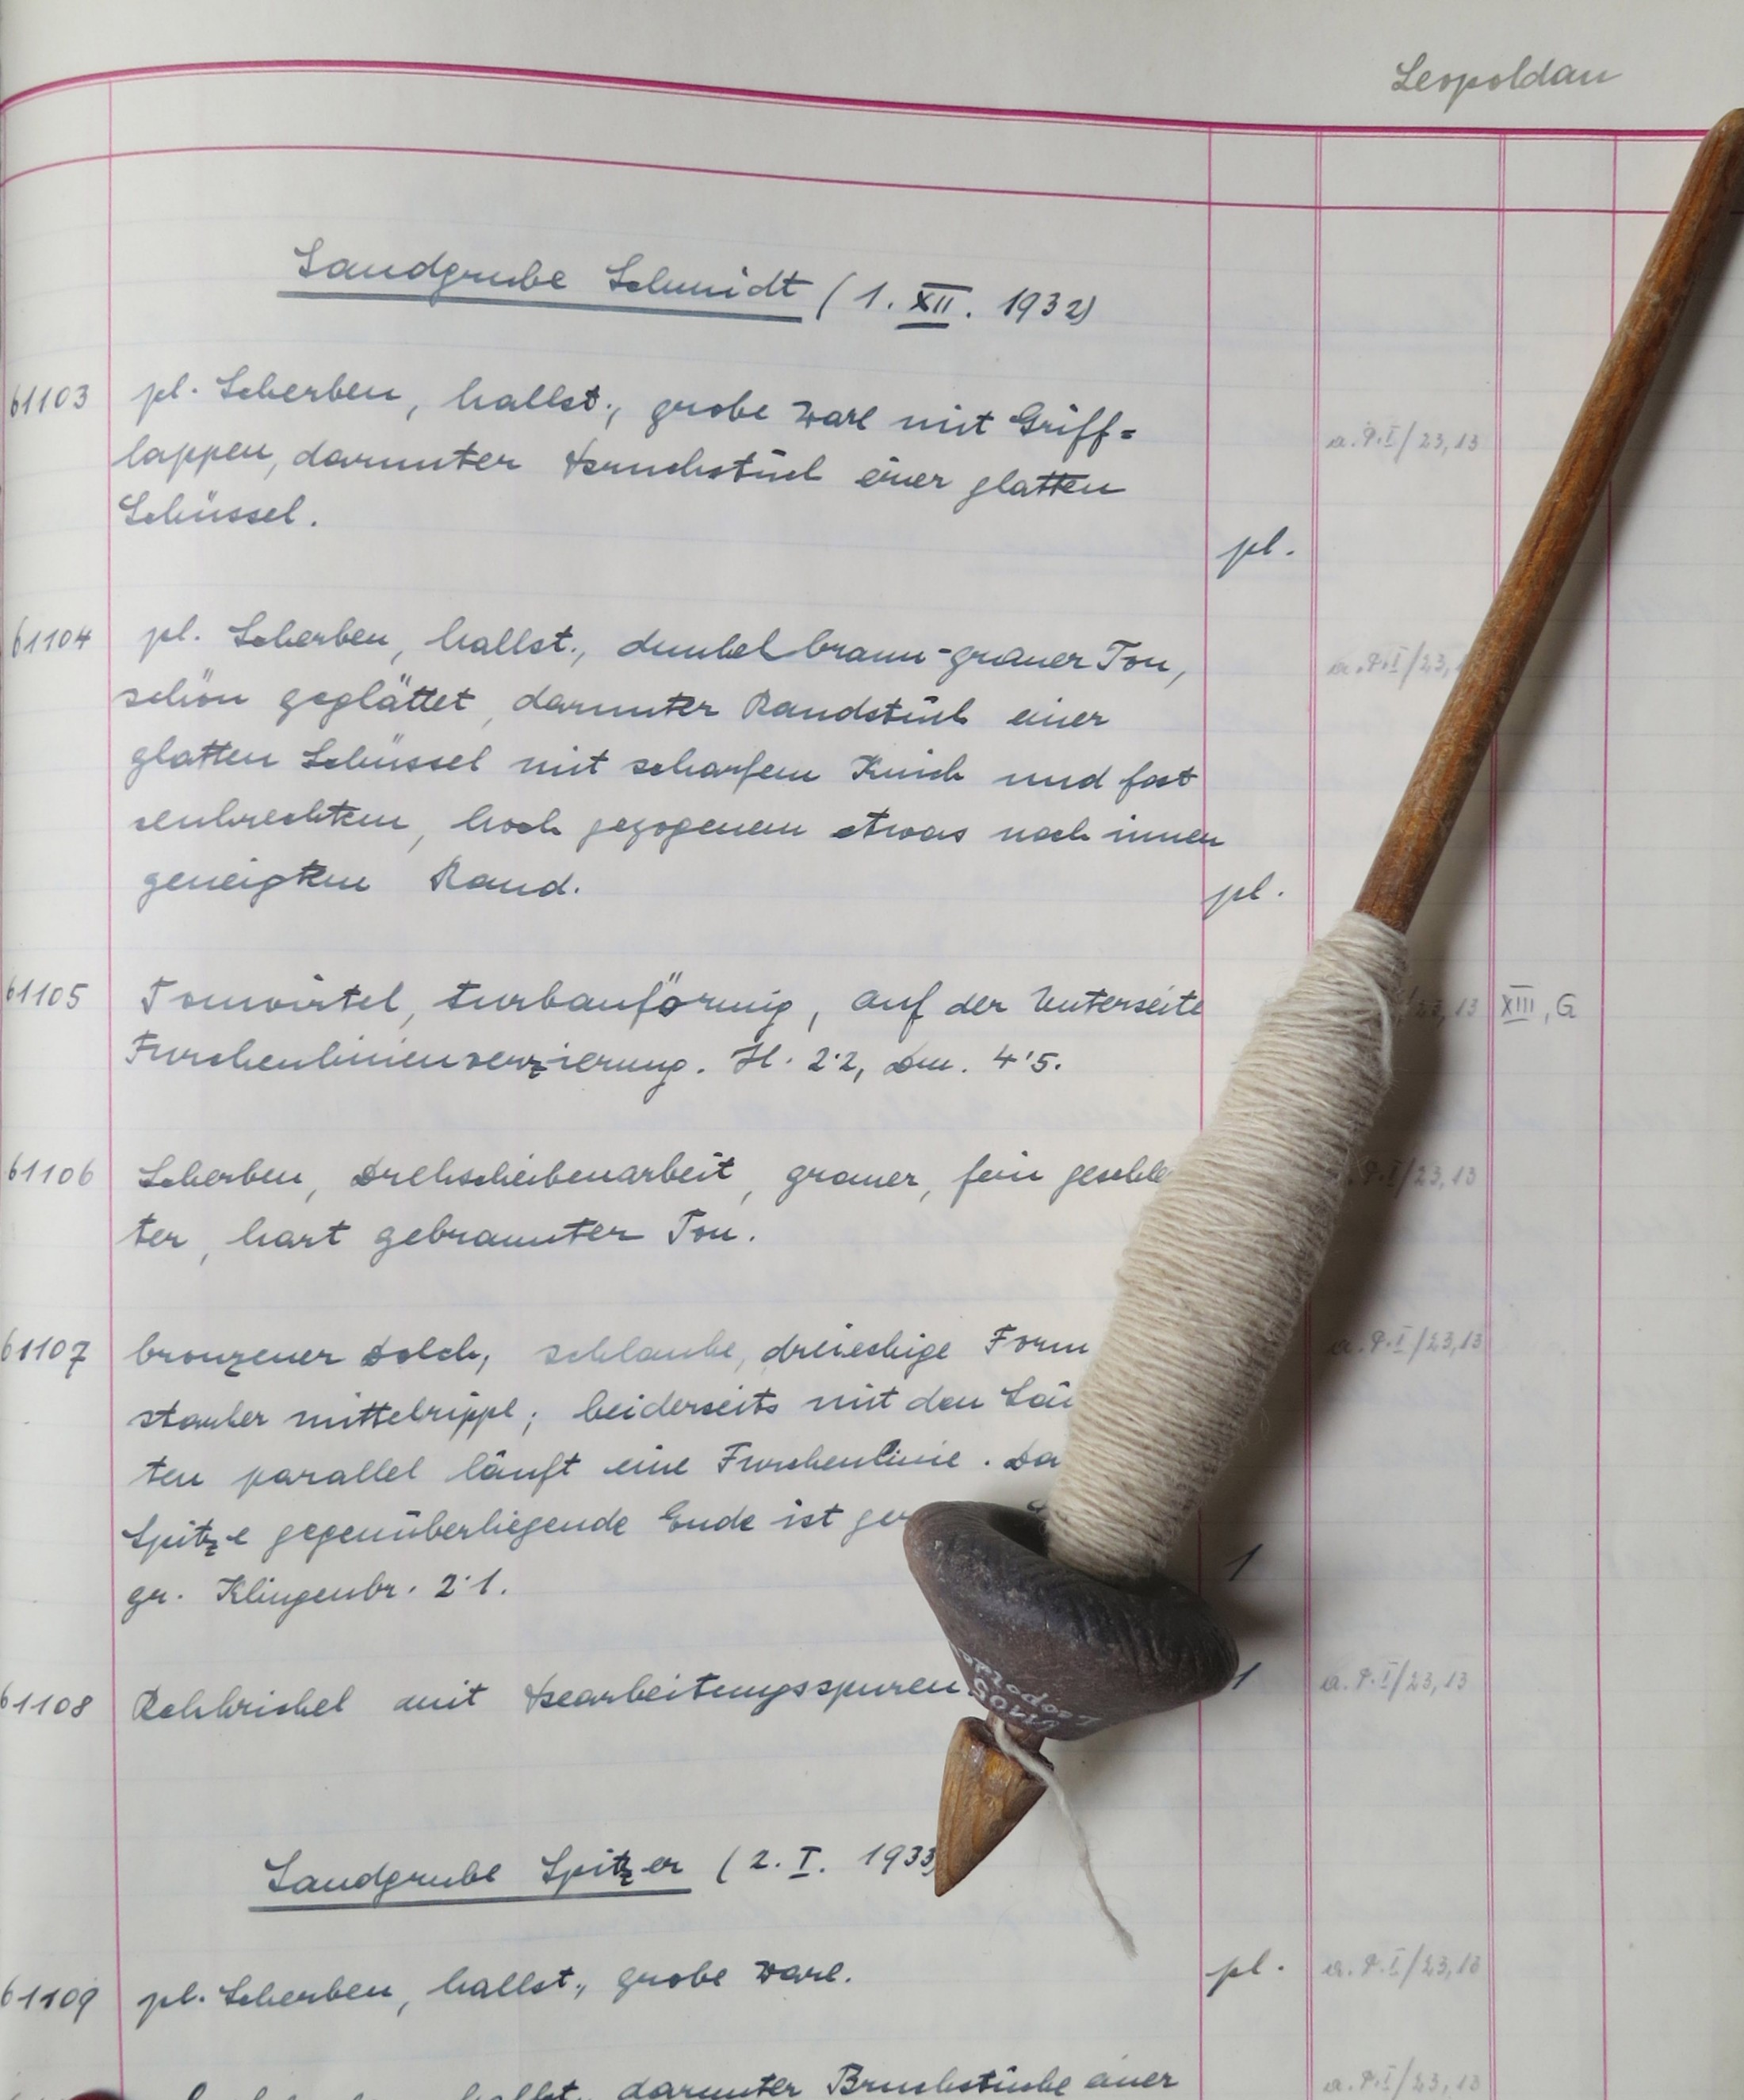 Leopoldau
Sandgrube Schmidt (1. XII. 1932)
61103 pl. Scherben, hallst., grobe Ware mit Griff=
a.P.I/23,13
lappen, darunter Bruchstück einer glatten
Schüssel.
pl.
61104 pl. Scherben, hallst., dunkelbraun-grauer Ton,
a.P.I/23,
schön geglättet, darunter Randstück einer
glatten Schüssel mit scharfem Knick und fast
senkrechtem, hoch gezogenem etwas nach innen
geneigtem Rand.
pl.
61105 Tonwirtel, turbanförmig, auf der Unterseite
23,13 XIII, G
Furchenlinienverzierung. H. 2'2, Dm. 4'5.
61106 Scherben, Drehscheibenarbeit, grauer, fein geschle
P.I/23,13
ter, hart gebrannter Ton.
61107 bronzener Dolch, schlanke, dreieckige Form
a.P.I/23,13
starker Mittelrippe; beiderseits mit den
ten parallel läuft eine Furchenlinie. Da
Spitze gegenüberliegende Ende ist ger
1
gr. Klingenbr. 2'1.
61108 Rehkrickel mit Bearbeitungsspuren.
1 a.P.I/23,13
61105
Leopoldau
Sandgrube Spitzer (2. I. 1933)
61109 pl. Scherben, hallst., grobe Ware.
pl. a.P.I/23,13
hallst., darunter Bruchstücke einer
a.P.I/23,13